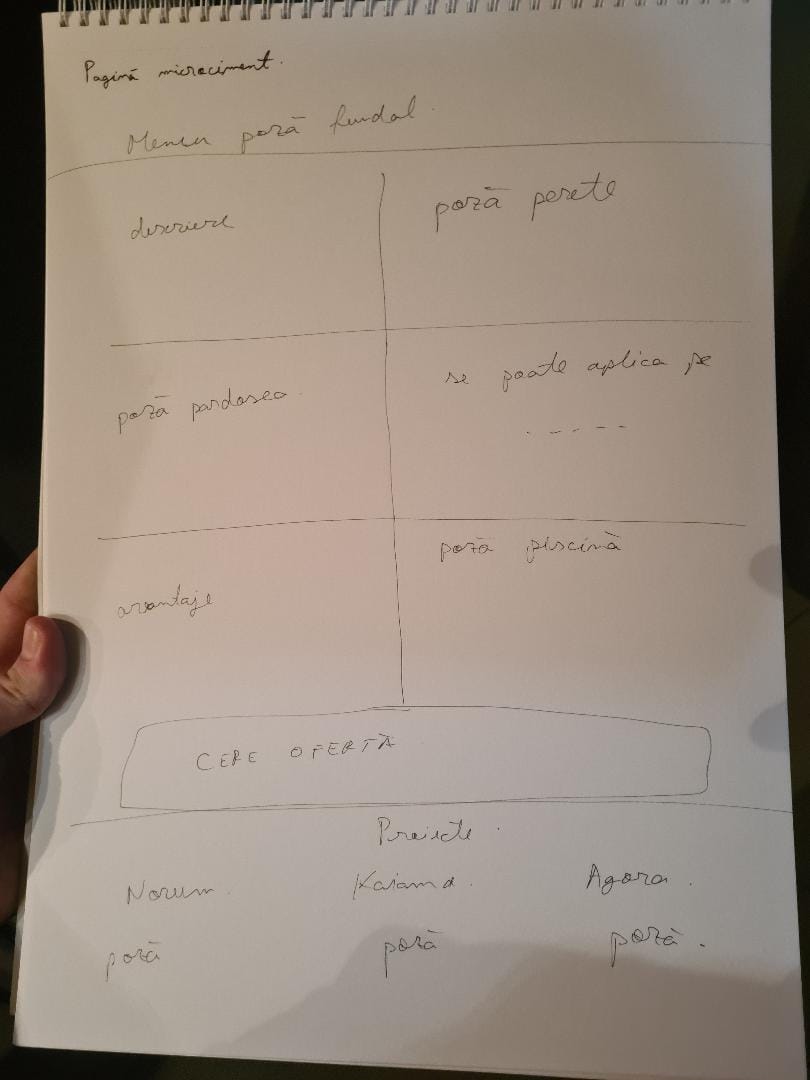 Pagină microciment.
Meniu poză fundal.
descriere
poză perete
poză pardosea
se poate aplica pe
-----
avantaje
poză piscină
CERE OFERTĂ
Proiecte.
Norum. Kaiamo. Agora.
poză poză poză.